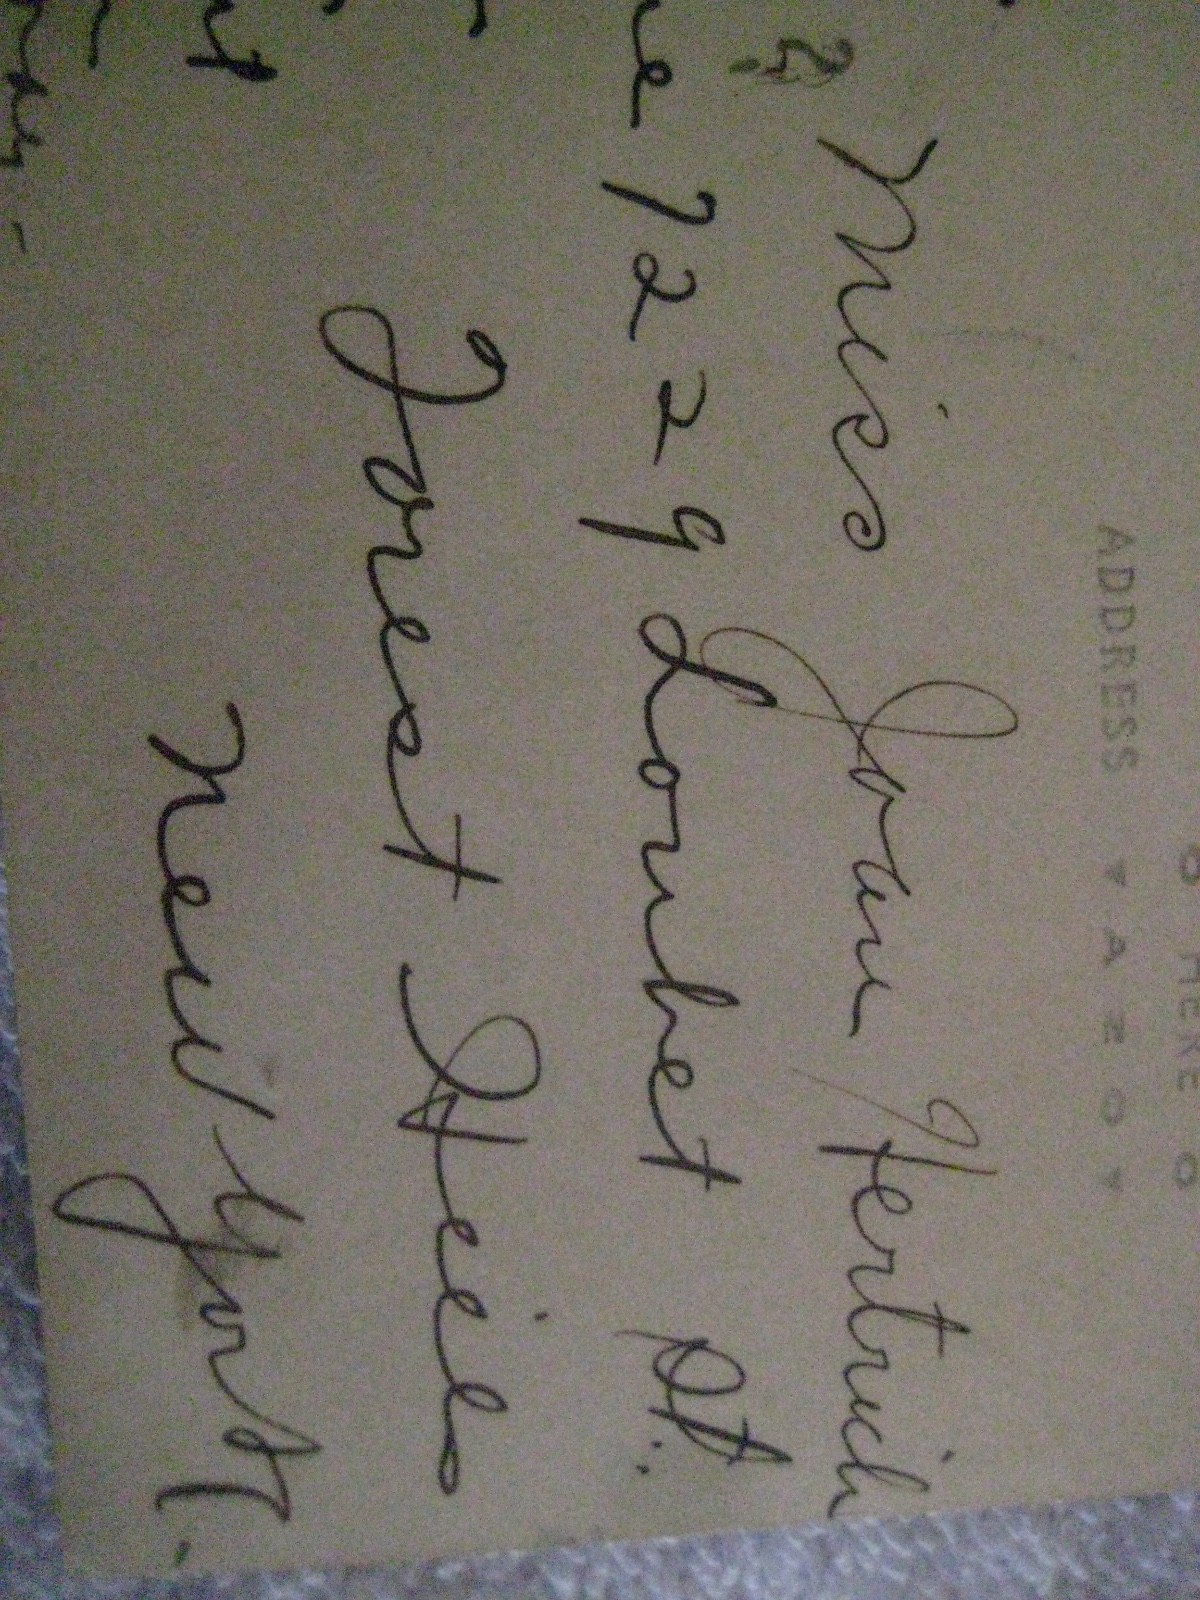 HERE
ADDRESS
Miss Joan Hertrich
7229 Loubet St.
Forest Hills
New York.